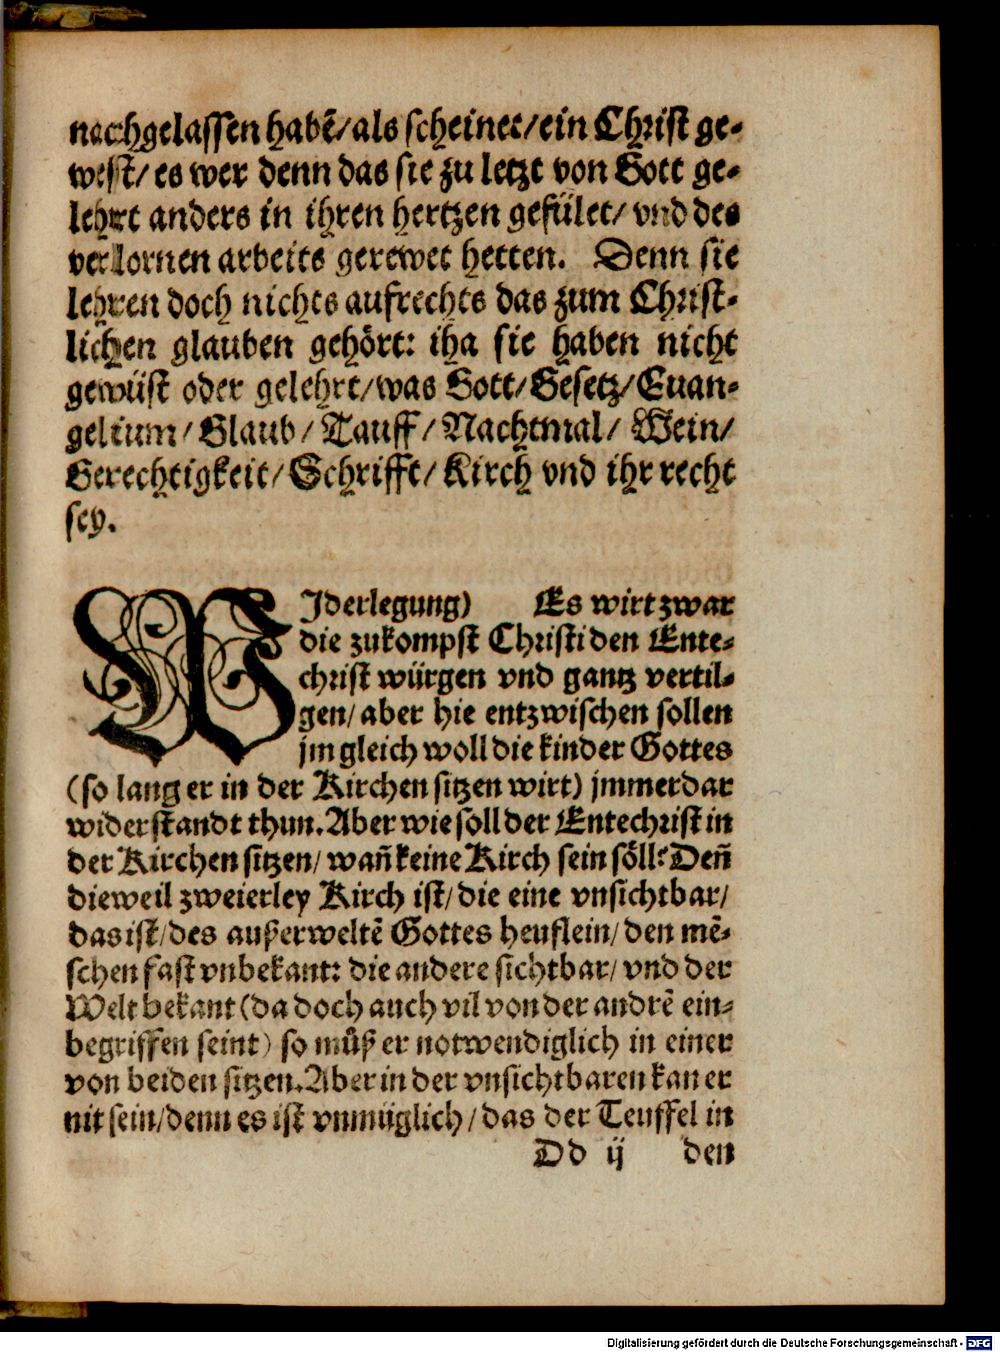 nachgelassen habẽ/als scheinet/ein Christ ge-
west/ es wer denn das sie zu letzt von Gott ge-
lehrt anders in ihren hertzen gefület/ vnd des
verlornen arbeits gerewet hetten. Denn sie
lehren doch nichts aufrechts das zum Christ-
lichen glauben gehört: iha sie haben nicht
gewüst oder gelehrt/was Gott/Gesetz/Euan-
gelium/Glaub/Tauff/Nachtmal/Wein/
Gerechtigkeit/Schrifft/Kirch vnd ihr recht
sey.
WIderlegung) Es wirt zwar
die zukompst Christi den Ente-
christ würgen vnd gantz vertil-
gen/ aber hie entzwischen sollen
jm gleich woll die kinder Gottes
(so lang er in der Kirchen sitzen wirt) jmmerdar
widerstandt thun. Aber wie soll der Entechrist in
der Kirchen sitzen/ wañ keine Kirch sein söll? Deñ
dieweil zweierley Kirch ist/ die eine vnsichtbar/
das ist/des außerweltẽ Gottes heuflein/den mẽ-
schen fast vnbekant: die andere sichtbar/ vnd der
Welt bekant (da doch auch vil von der andrẽ ein-
begriffen seint) so můß er notwendiglich in einer
von beiden sitzen. Aber in der vnsichtbaren kan er
nit sein/denn es ist vnmüglich/das der Teuffel in
Dd ij den
Digitalisierung gefördert durch die Deutsche Forschungsgemeinschaft - DFG